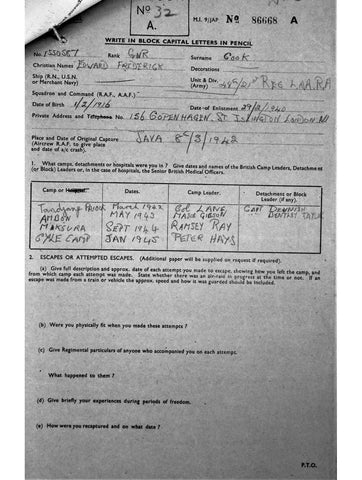 No 32
A.
M.I. 9/JAP. No 86668 A
WRITE IN BLOCK CAPITAL LETTERS IN PENCIL
No. Rank GNR Surname COOK
Christian Names EDWARD FREDERICK Decorations
Ship (R.N., U.S.N. or Merchant Navy) Unit & Div. (Army) REG L.A.A. R.A
Squadron and Command (R.A.F., A.A.F.)
Date of Birth 1/2/1916 Date of Enlistment 29/2/1940
Private Address and Telephone No. 156 COPENHAGEN ST ISLINGTON LONDON N1
Place and Date of Original Capture JAVA 8/3/1942
(Aircrew R.A.F. to give place and date of a/c crash).
1. What camps, detachments or hospitals were you in ? Give dates and names of the British Camp Leaders, Detachment
(or Block) Leaders or, in the case of hospitals, the Senior British Medical Officers.
Camp or Hospital. Dates. Camp Leader. Detachment or Block Leader (if any).
March 1942 COL LANE CAPT
AMBON MAY 1943 MAJOR GIBSON
MAKSURA SEPT 1944 RAMSEY RAY
CYCLE CAMP JAN 1945 PETER HAYS
2. ESCAPES OR ATTEMPTED ESCAPES. (Additional paper will be supplied on request if required).
(a) Give full description and approx. date of each attempt you made to escape, showing how you left the camp, and
from which camp each attempt was made. State whether there was an air-raid in progress at the time or not. If an
escape was made from a train or vehicle the approx. speed and how it was guarded should be included.
(b) Were you physically fit when you made these attempts ?
(c) Give Regimental particulars of anyone who accompanied you on each attempt.
What happened to them ?
(d) Give briefly your experiences during periods of freedom.
(e) How were you recaptured and on what date ?
P.T.O.